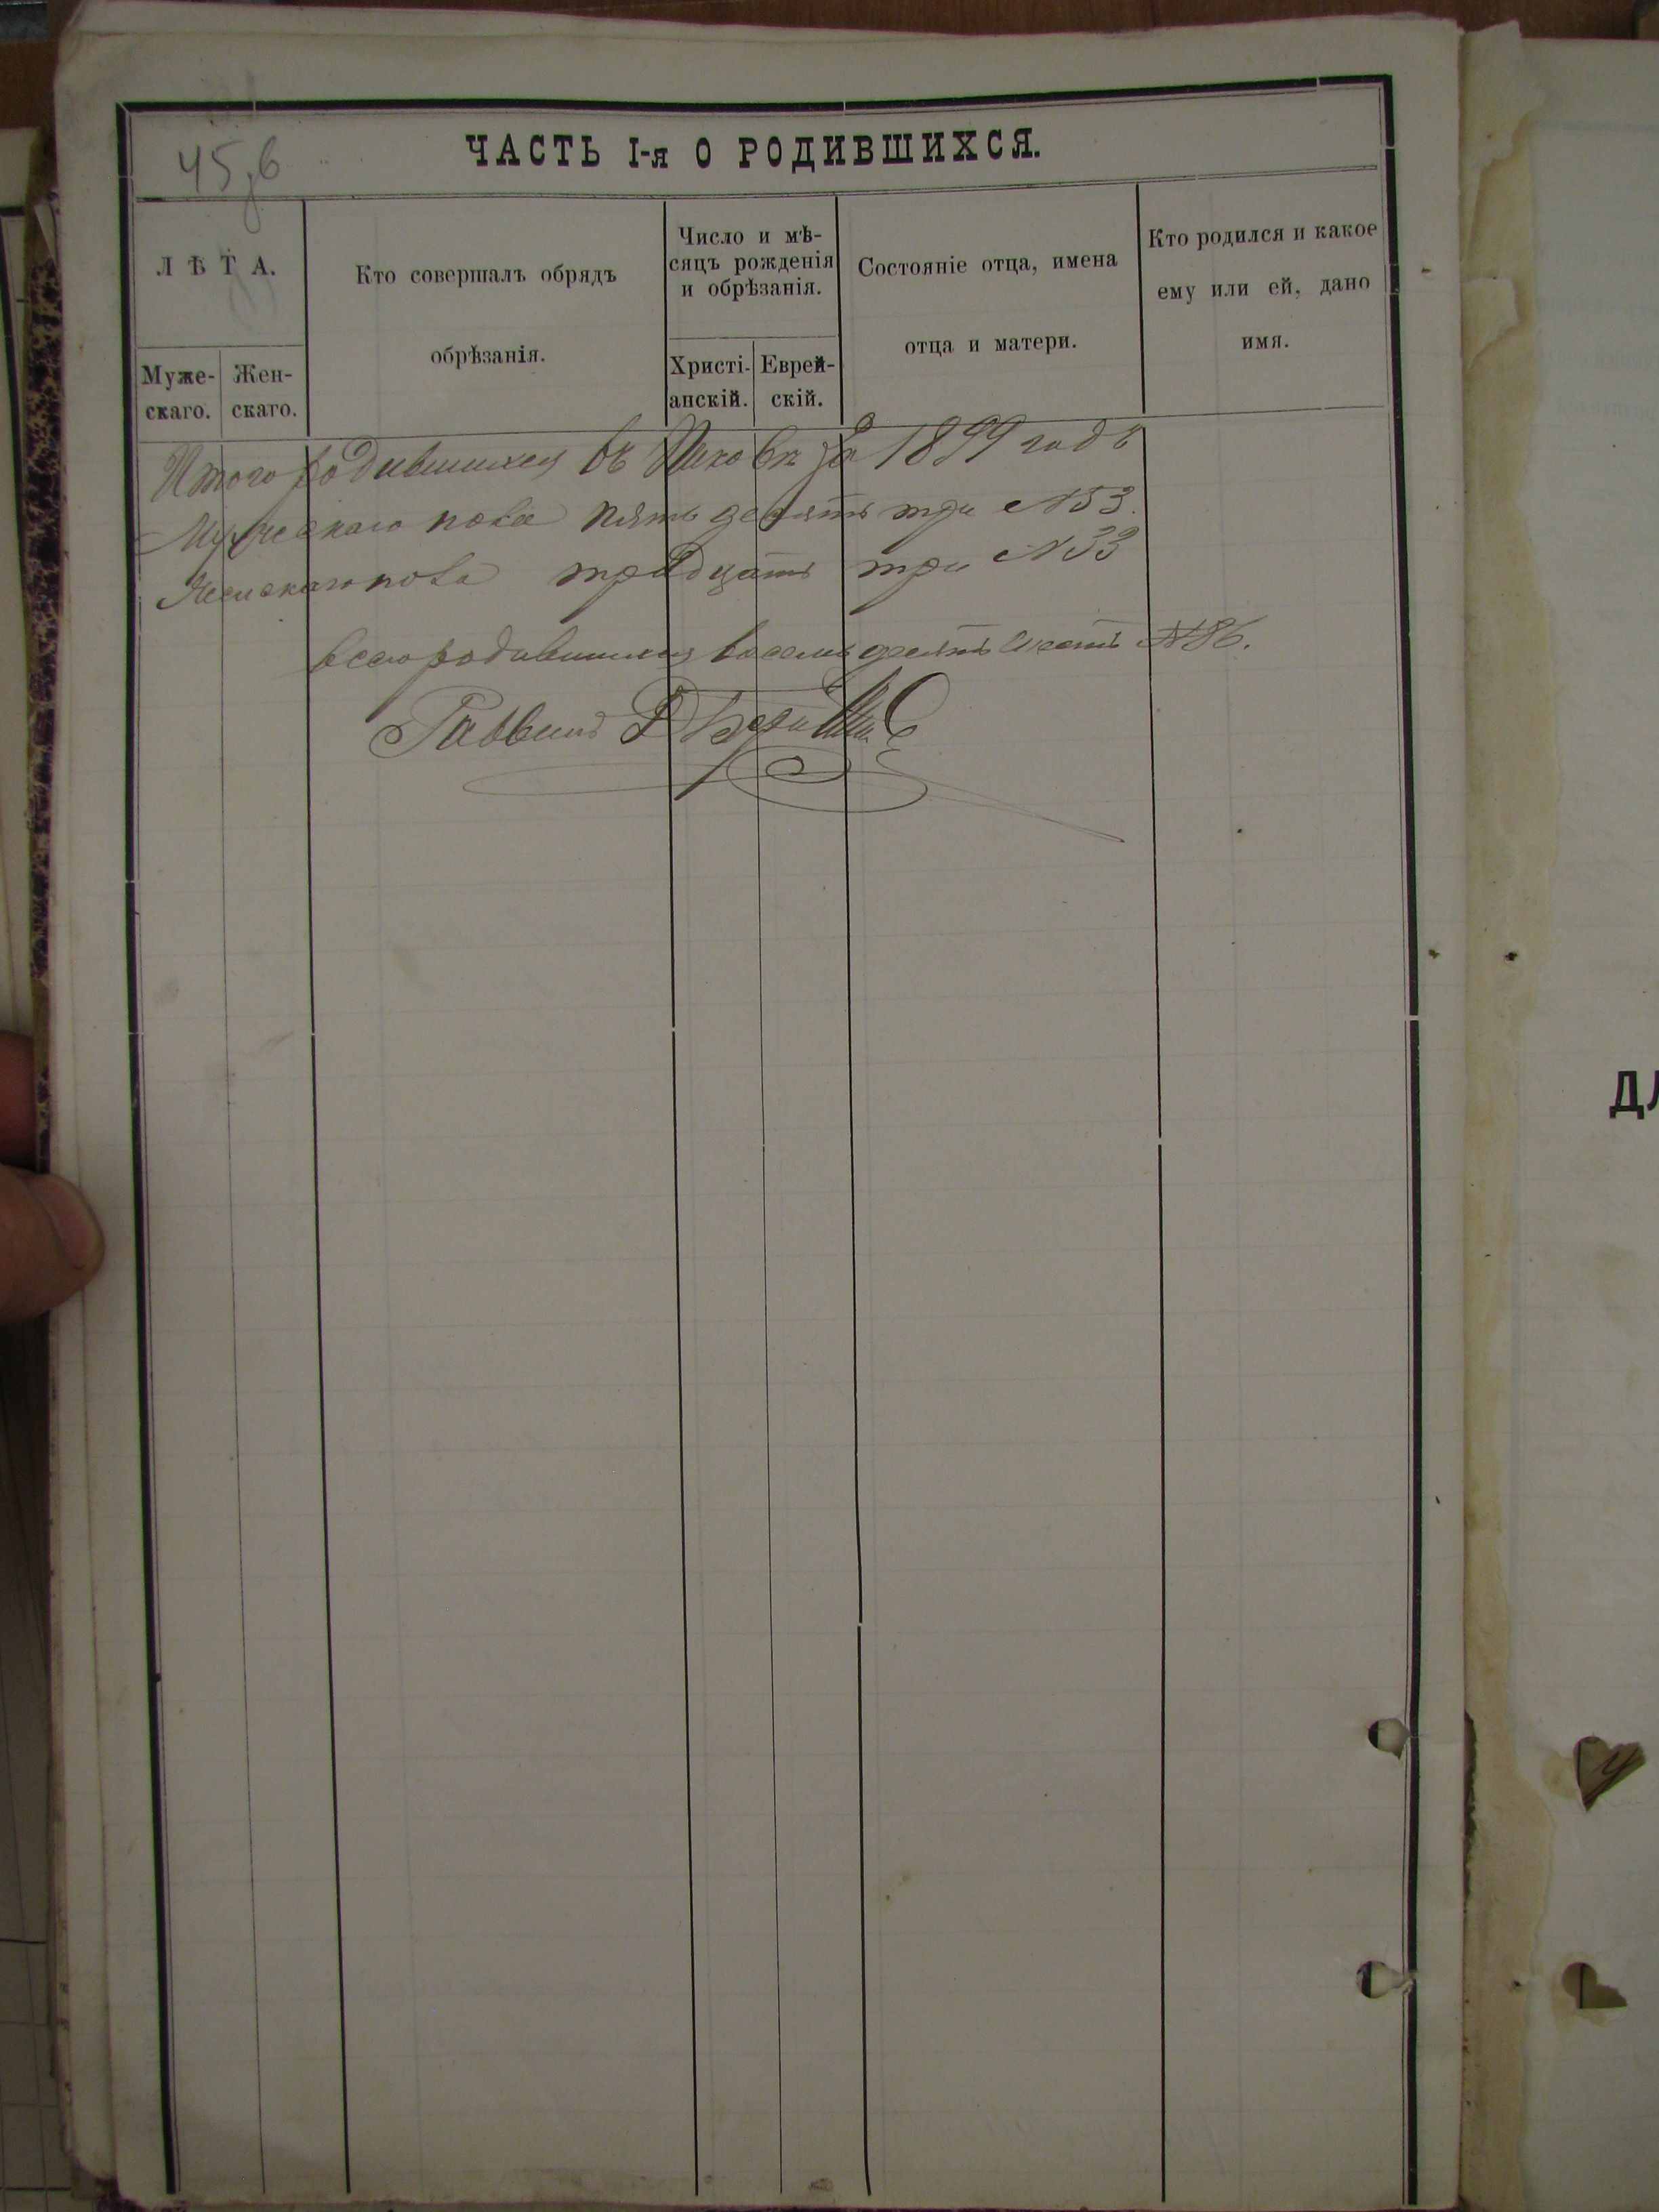 45,6
ЧАСТЬ I-я О РОДИВШИХСЯ.
ЛѢТА.
Муже-
скаго.
Жен-
скаго.
Кто совершалъ обрядъ
обрѣзанія.
Число и мѣ-
сяцъ рожденія
и обрѣзанія.
Христі-
анскій.
Еврей-
скій.
Состояніе отца, имена
отца и матери.
Кто родился и какое
ему или ей, дано
имя.
Итого родившихся въ за 1899 годъ
Мужескаго пола пять десятъ три №53.
Женскаго пола тридцать три №33
всего родившихся восемь десятъ шесть №86.
Раввинъ
ДЛ